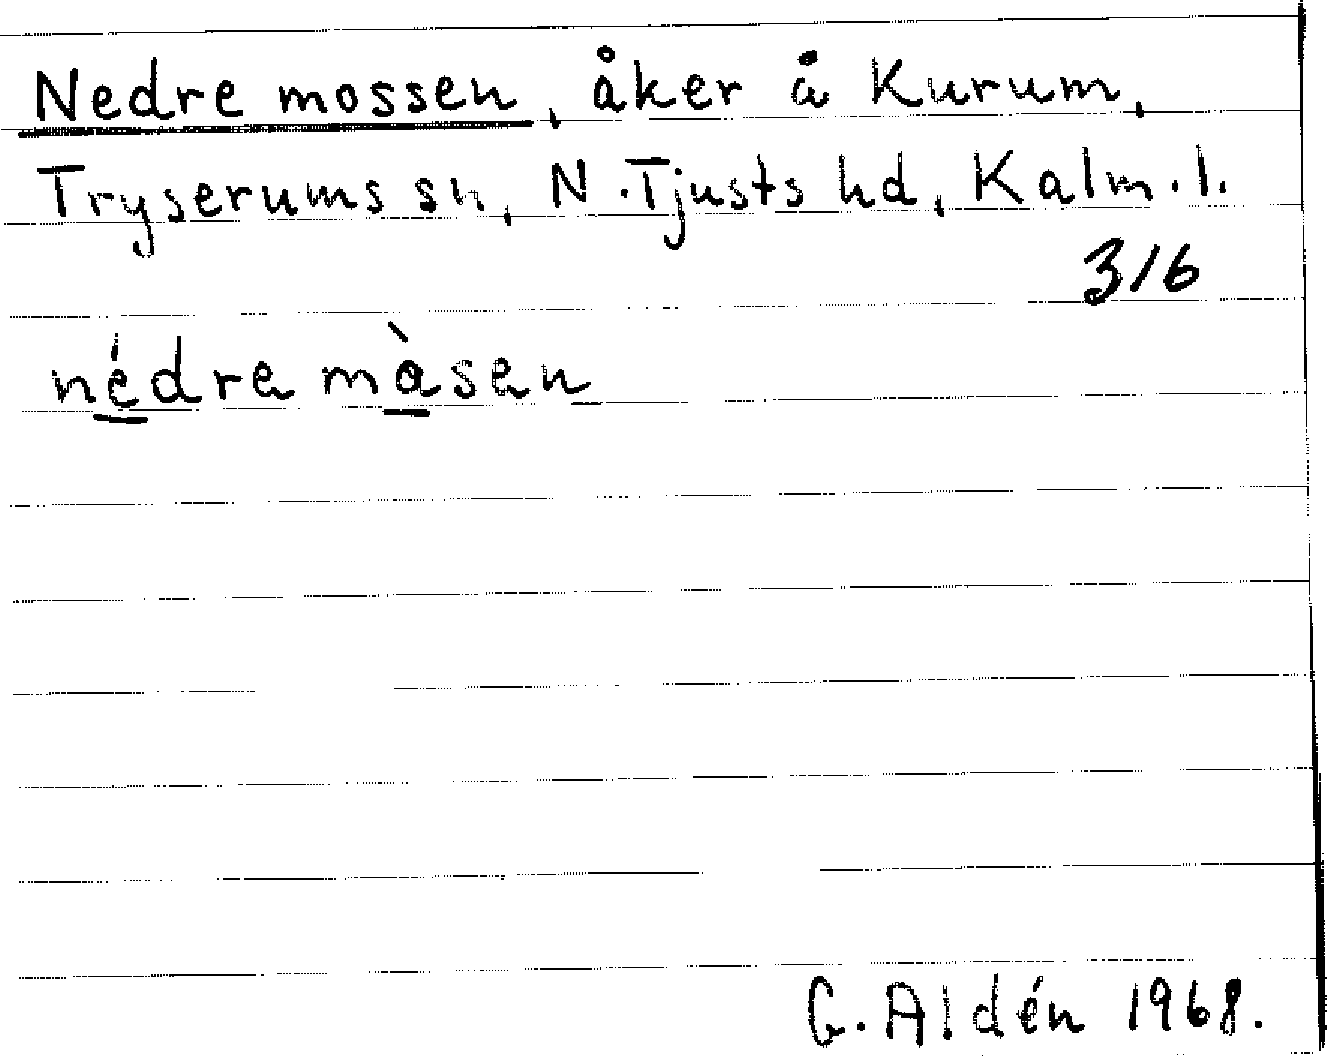 Nedre mossen, åker å Kurum,
Tryserums sn, N. Tjusts hd, Kalm. l.
316
nédre màsen
G. Aldén 1968.